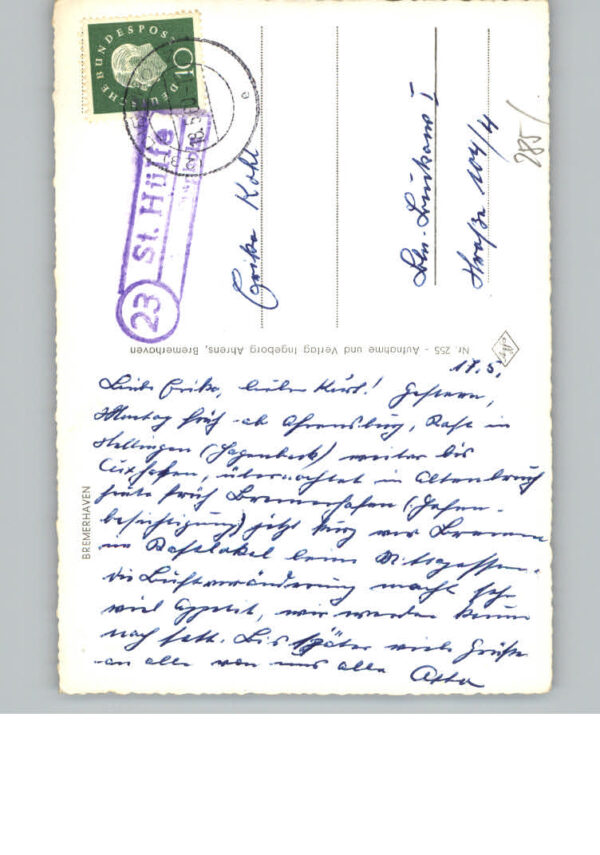 DEUTSCHE BUNDESPOST
10
23 St. Hülfe
Erika Kohl
Bln.
I
Straße 104/4
285/
Nr. 255 - Aufnahme und Verlag Ingeborg Ahrens, Bremerhaven
BREMERHAVEN
17.5.
Liebe Erika, lieber Kurt! Gestern,
Montag früh ab Ahrensburg, Rast in
Stellingen (Hagenbeck) weiter bis
Cuxhafen, übernachtet in Altenbruch
heute früh Bremerhafen (Hafen-
besichtigung) jetzt kurz vor Bremen
im Rastlokal beim Mittagessen.
die Luftveränderung macht sehr
viel Appetit, wir werden kaum
noch satt. Bis später viele Grüße
an alle von uns alle